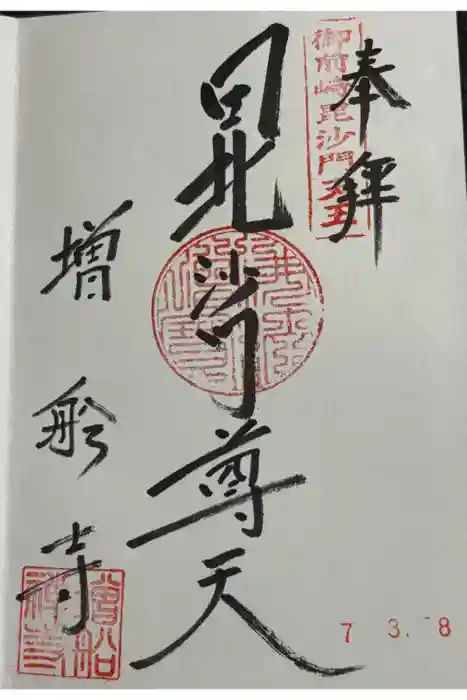 奉拝
御前崎毘沙門天王
毘沙門尊天
増船寺
增船禅寺
7 3. -8